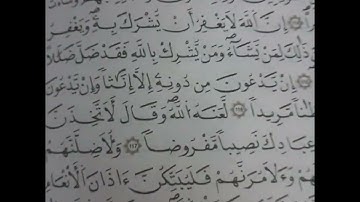 إِنَّ ٱللَّهَ لَا يَغْفِرُ أَن يُشْرَكَ بِهِۦ وَيَغْفِرُ
ذَٰلِكَ لِمَن يَشَآءُ وَمَن يُشْرِكْ بِٱللَّهِ فَقَدْ ضَلَّ ضَلَٰلًا
إِن يَدْعُونَ مِن دُونِهِۦٓ إِلَّآ إِنَٰثًا وَإِن يَدْعُونَ
مَّرِيدًا ١١٧ لَّعَنَهُ ٱللَّهُ وَقَالَ لَأَتَّخِذَنَّ
عِبَادِكَ نَصِيبًا مَّفْرُوضًا ١١٨ وَلَأُضِلَّنَّهُمْ
وَلَءَامُرَنَّهُمْ فَلَيُبَتِّكُنَّ ءَاذَانَ ٱلْأَنْعَٰمِ